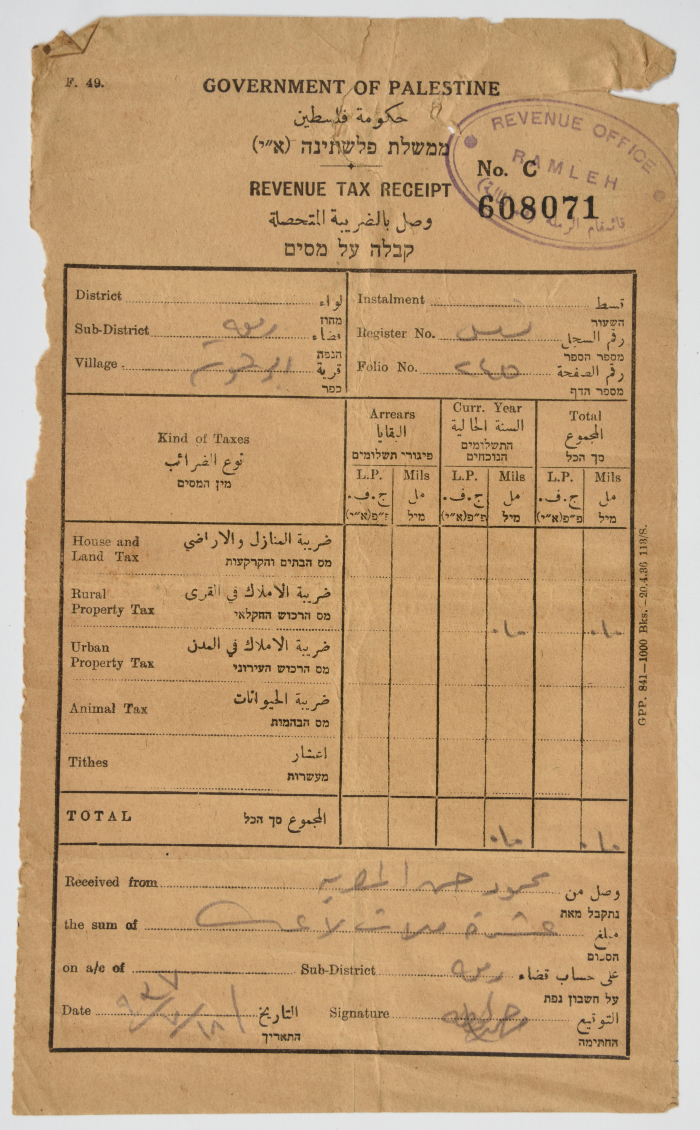 F. 49.
GOVERNMENT OF PALESTINE
حكومة فلسطين
ממשלת פלשתינה (א״י)
REVENUE OFFICE
RAMLEH
قائمقام الرملة
No. C
608071
REVENUE TAX RECEIPT
وصل بالضريبة المتحصلة
קבלה על מסים
District لواء
מחוז
Sub-District رملة قضاء
הנפה
Village قرية
כפר
Instalment قسط
השעור
Register No. رقم السجل
מספר הספר
Folio No. ٢٤٥ رقم الصفحة
מספר הדף
Kind of Taxes
نوع الضرائب
מין המסים
Arrears
البقايا
פיגורי תשלומים
Curr. Year
السنة الحالية
התשלומים
הנוכחים
Total
المجموع
סך הכל
L.P. Mils L.P. Mils L.P. Mils
ج.ف. مل ج.ف. مل ج.ف. مل
פ״פ(א״י) מיל פ״פ(א״י) מיל פ״פ(א״י) מיל
House and ضريبة المنازل والاراضي
Land Tax מס הבתים והקרקעות
Rural ضريبة الاملاك في القرى
Property Tax מס הרכוש החקלאי
٠١٠ ٠١٠
Urban ضريبة الاملاك في المدن
Property Tax מס הרכוש העירוני
Animal Tax ضريبة الحيوانات
מס הבהמות
Tithes اعشار
מעשרות
TOTAL المجموع סך הכל ٠١٠ ٠١٠
Received from محمود حسن وصل من
נתקבל מאת
the sum of عشرة ملات لا غير مبلغ
הסכום
on a/c of Sub-District رملة على حساب قضاء
על חשבון נפת
Date التاريخ Signature التوقيع
התאריך החתימה
GPP. 841—1000 Bks.—20.4.36 113/S.